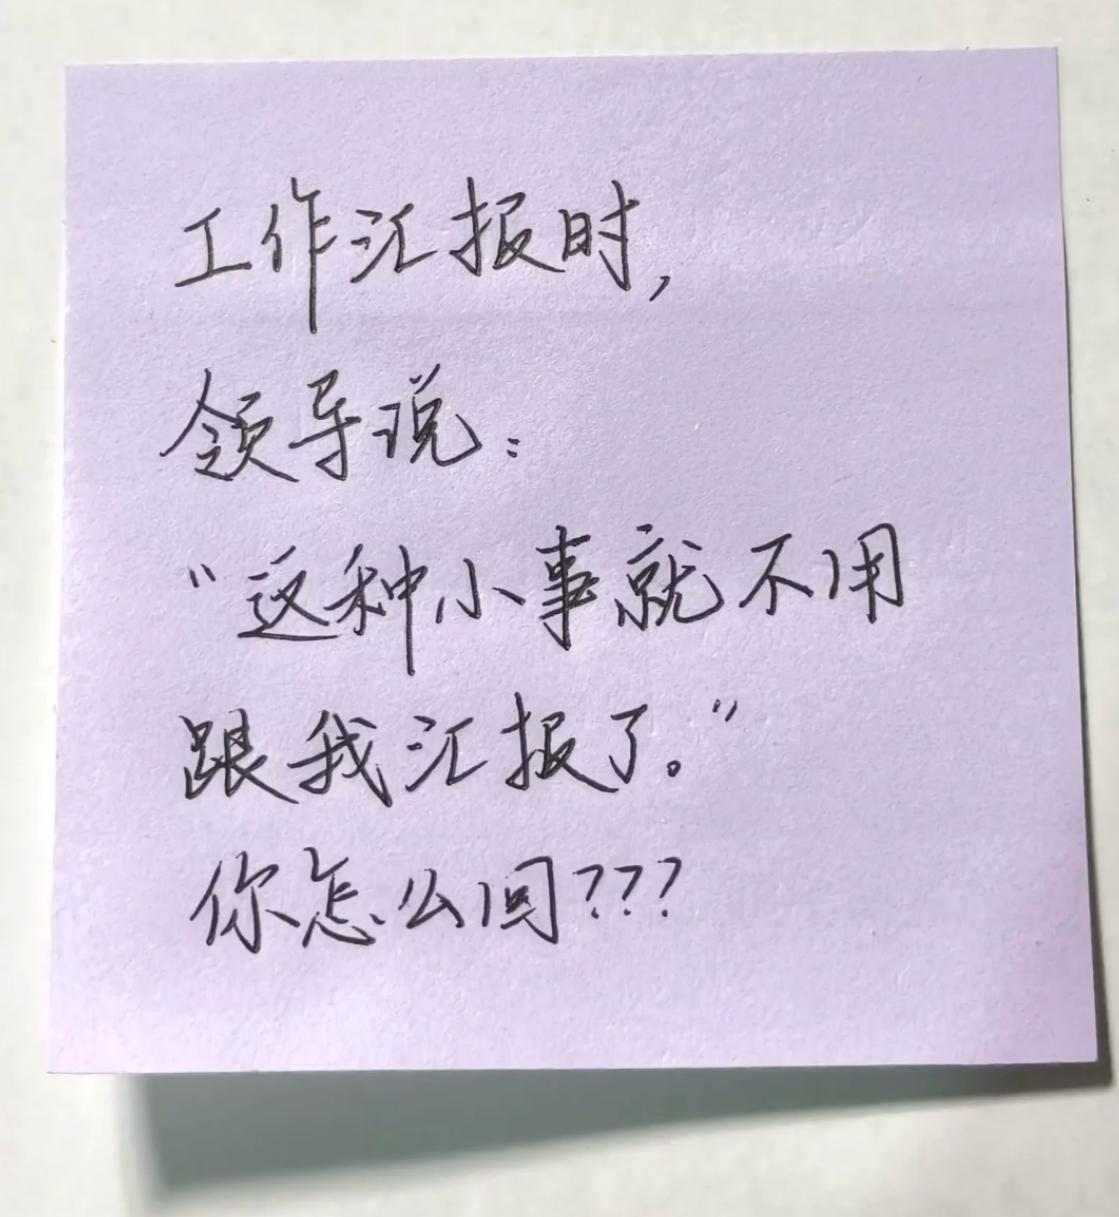 工作汇报时,
领导说:
“这种小事就不用
跟我汇报了。”
你怎么回???